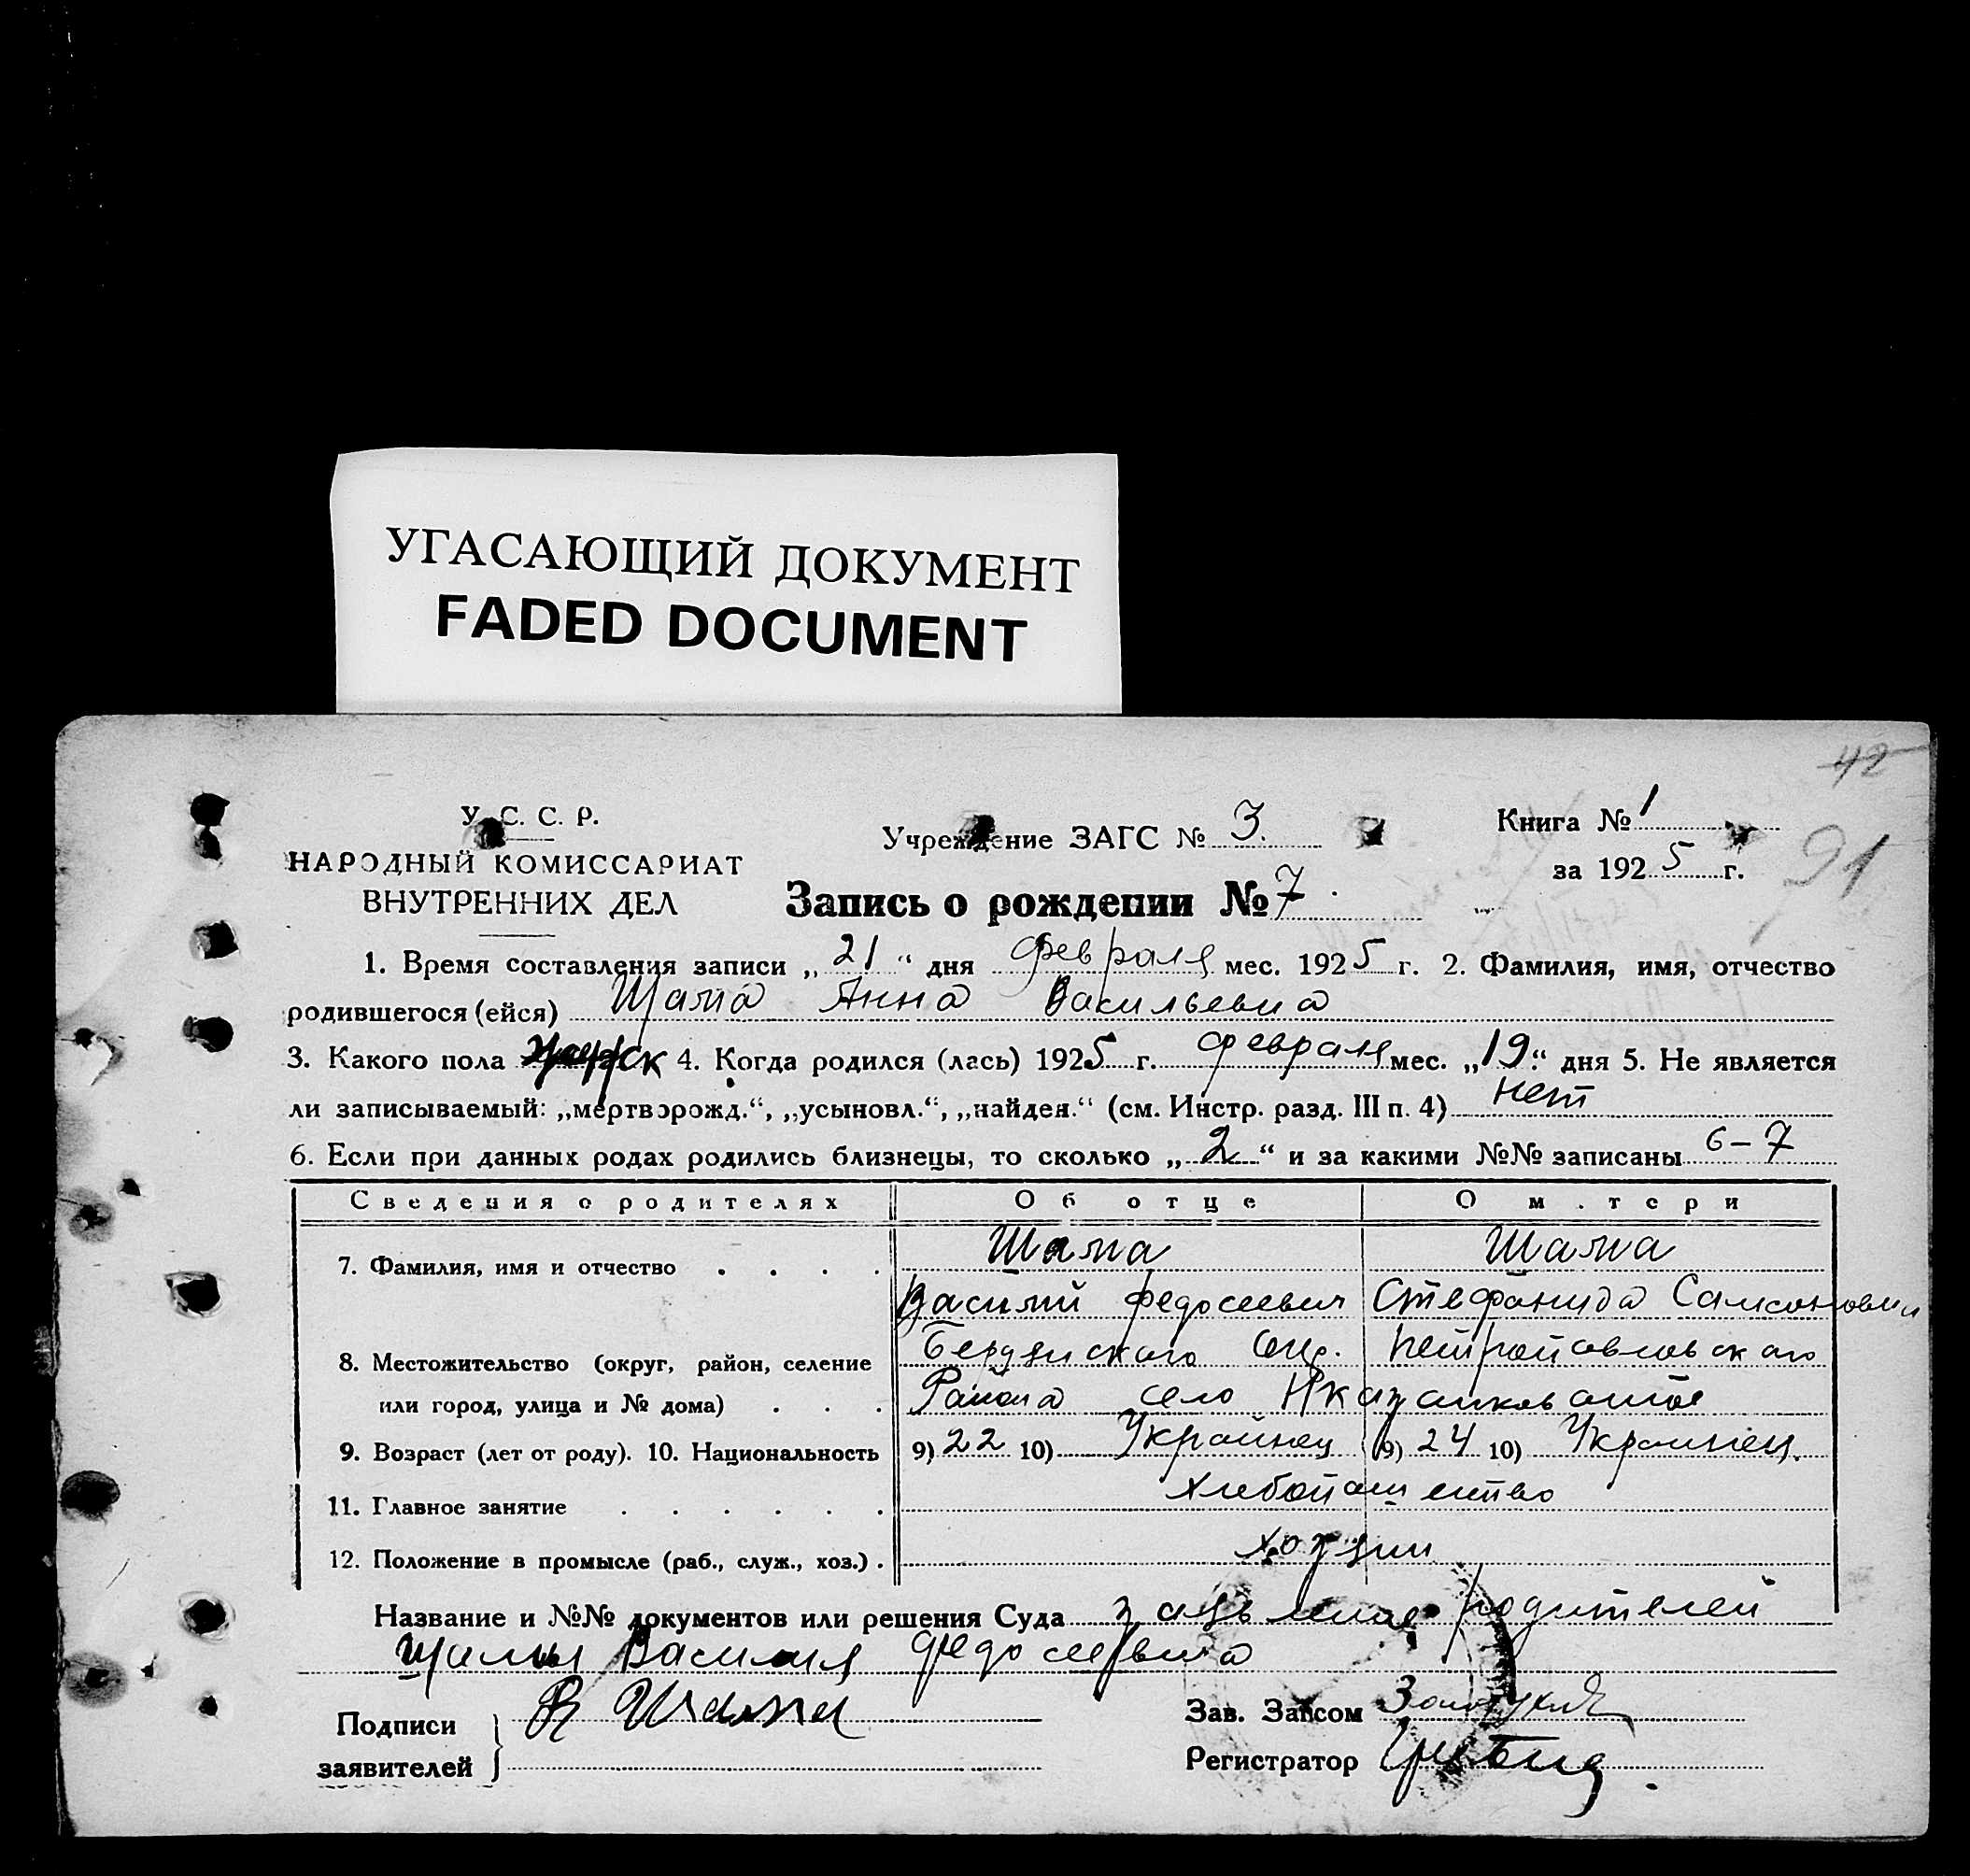 УГАСАЮЩИЙ ДОКУМЕНТ
FADED DOCUMENT
42
У. С. С. Р.
НАРОДНЫЙ КОМИССАРИАТ
ВНУТРЕННИХ ДЕЛ
Учреждение ЗАГС № 3.
Книга № 1
за 1925 г.
91
Запись о рождении № 7.
1. Время составления записи „21“ дня февраля мес. 1925 г. 2. Фамилия, имя, отчество
родившегося (ейся) Шама Анна Васильевна
3. Какого пола 4. Когда родился (лась) 1925 г. февраля мес. „19“ дня 5. Не является
ли записываемый: „мертворожд.“, „усыновл.“, „найден.“ (см. Инстр. разд. III п. 4) нет
6. Если при данных родах родились близнецы, то сколько „2“ и за какими №№ записаны 6–7
Сведения о родителях Об отце О м.тери
7. Фамилия, имя и отчество . . . . Шама Шама
Василий Федосеевич Стефанида Самсоновна
8. Местожительство (округ, район, селение Бердянского Окр. Петропавловского
или город, улица и № дома) . . . Района село
9. Возраст (лет от роду). 10. Национальность 9) 22 10) Украинец 9) 24 10) Украинец.
11. Главное занятие . . . . . . Хлебопашество
12. Положение в промысле (раб., служ., хоз.) . хозяин
Название и №№ документов или решения Суда родителей
Шамы Василия
Подписи
заявителей
В Шама
Зав. Загсом
Регистратор